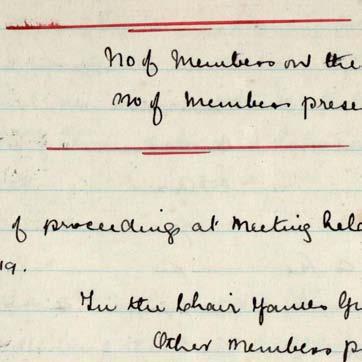 No of Members on the
No of Members prese
of proceedings at Meeting held
19.
In the Chair James Gr
Other Members p